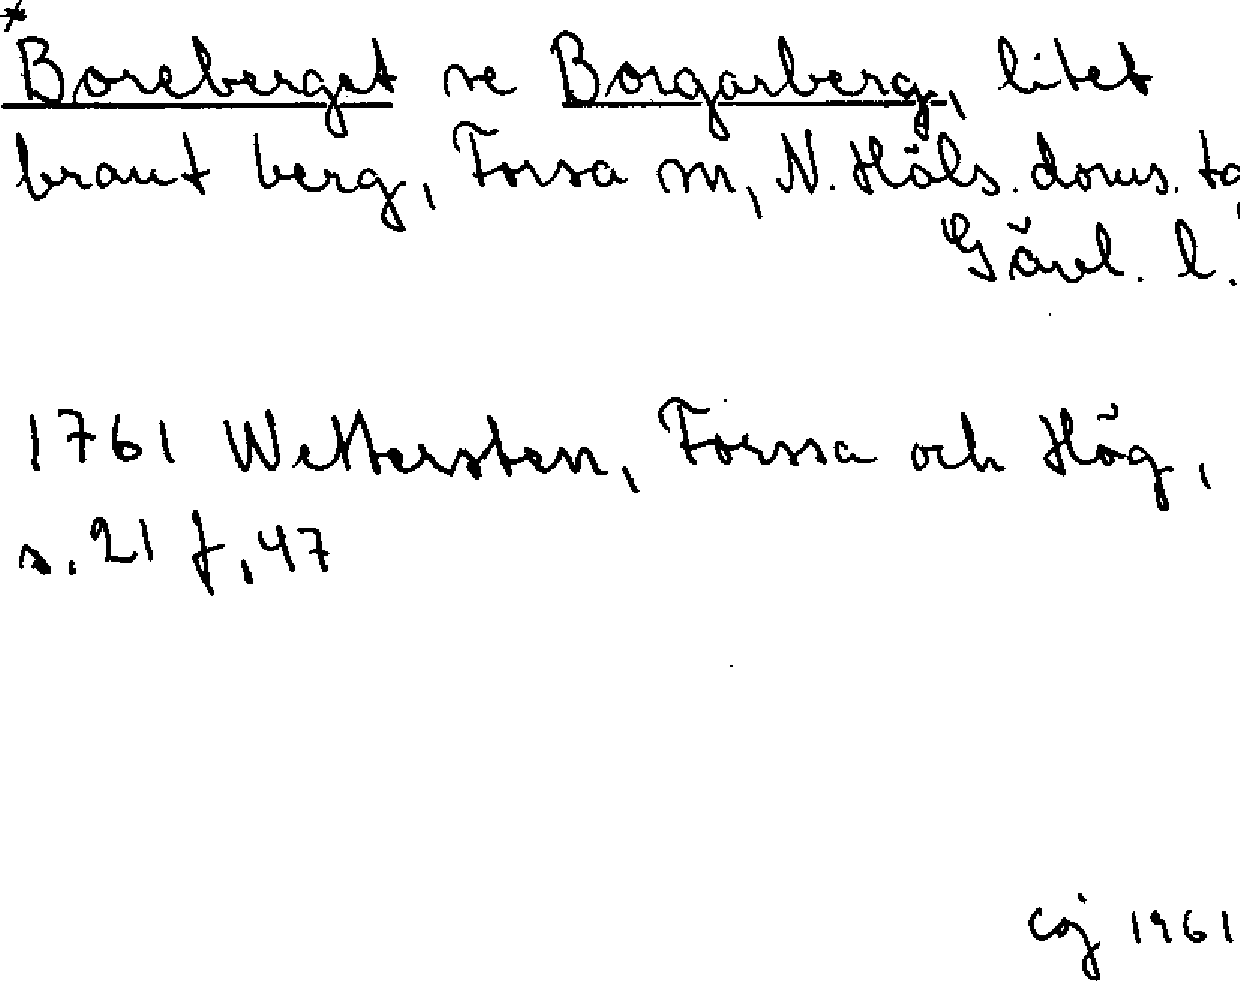 *
Boreberget se Borgarberg, litet
brant berg, Forsa sn, N. Häls. doms. t
Gävl. l.
1761 Wettersten, Forssa och Hög,
s. 21 f, 47
coj 1961